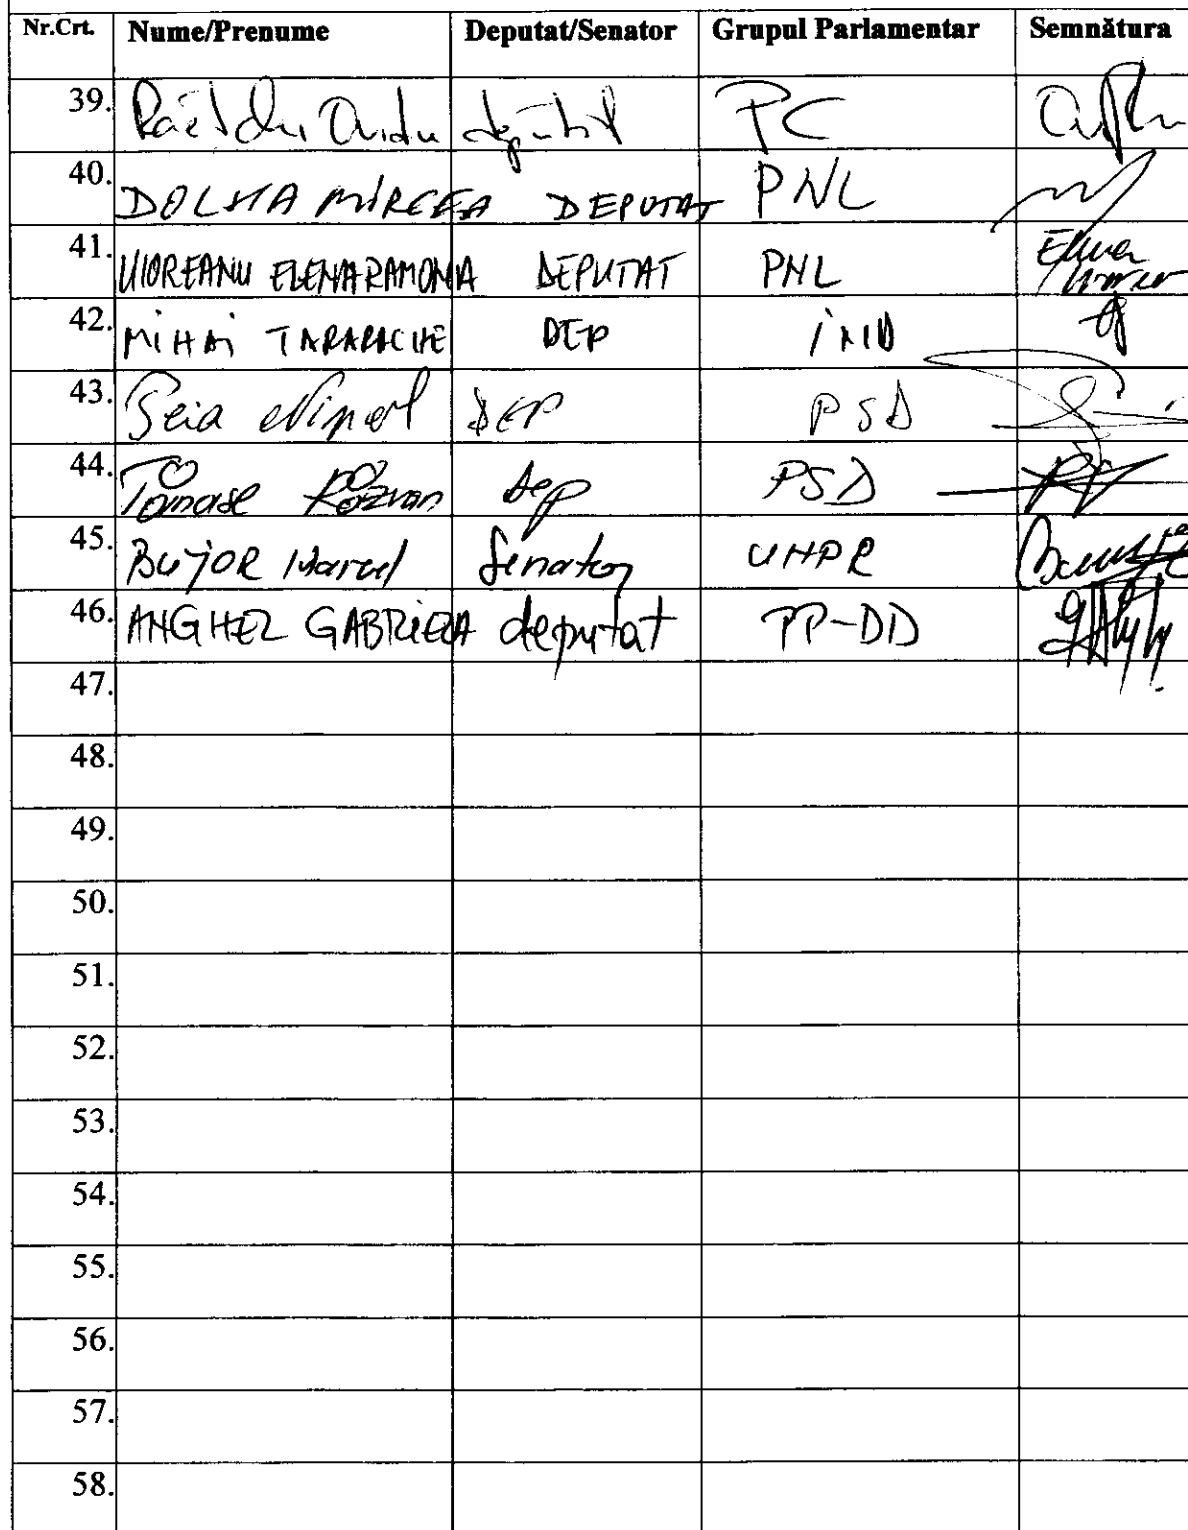 Nr.Crt. Nume/Prenume Deputat/Senator Grupul Parlamentar Semnătura
39. deputat PC
40. DOLHA MIRCEA DEPUTAT PNL
41. UIOREANU ELENA RAMONA DEPUTAT PNL
42. MIHAI TARARACHE DEP IND
43. DEP PSD
44. Tomase Răzvan dep PSD
45. BUJOR Marcel Senator UNPR
46. ANGHEL GABRIELA deputat PP-DD
47.
48.
49.
50.
51.
52.
53.
54.
55.
56.
57.
58.